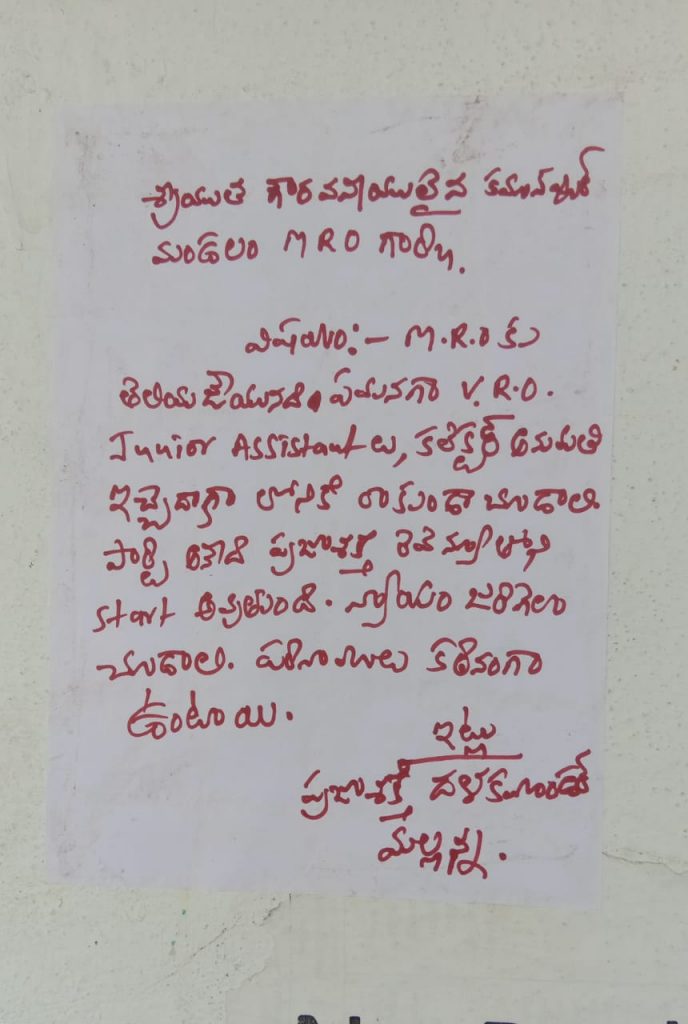 శ్రీయుత గౌరవనీయులైన కమాన్‌పూర్
మండలం MRO గారికి,
విషయం:- M.R.O కు
తెలియజేయునది. ఏమనగా V.R.O.
Junior Assistant లు, కలెక్టర్ అనుమతి
ఇచ్చేదాకా లోనికి రాకుండా చూడాలి.
పార్టీ అనేది ప్రజాశక్తి రెవెన్యూలోని
start అవుతుంది. న్యాయం జరిగేలా
చూడాలి. పరిణామాలు కఠినంగా
ఉంటాయి.
ఇట్లు
ప్రజాశక్తి దళకమాండర్
మల్లన్న.